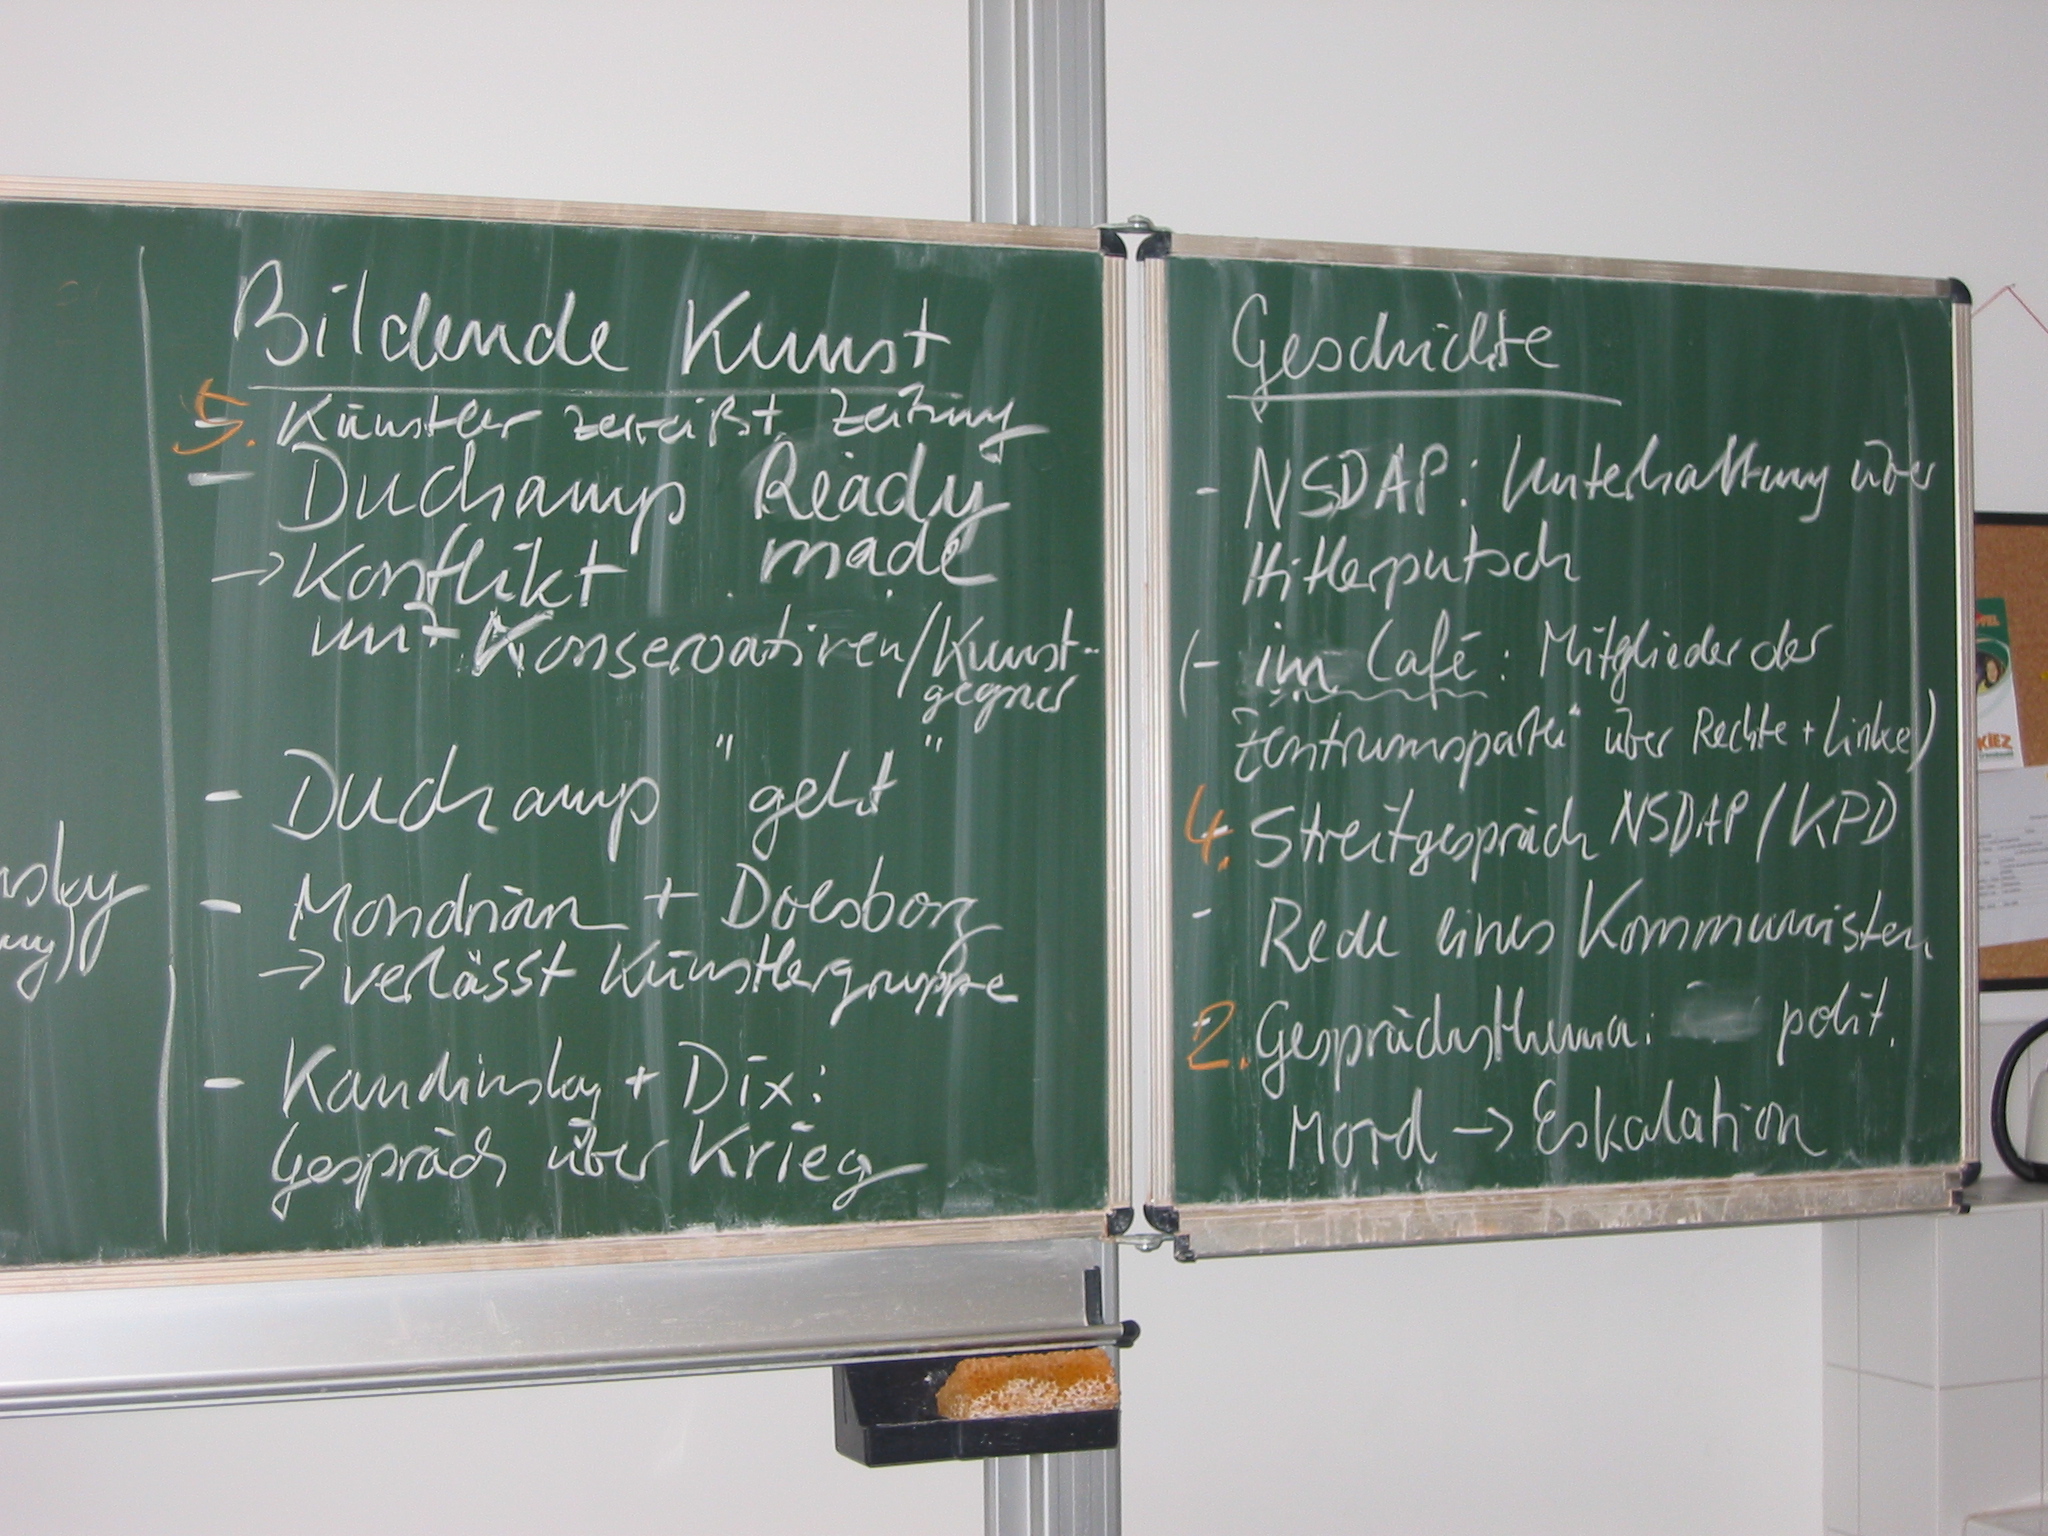 Bildende Kunst
5. Künstler zerreißt Zeitung
- Duchamp Ready
made
→ Konflikt
mit Konservativen/Kunst-
gegner
- Duchamp "geht"
- Mondrian + Doesborg
→ verlässt Künstlergruppe
- Kandinsky + Dix:
Gespräch über Krieg
Geschichte
- NSDAP: Unterhaltung über
Hitlerputsch
(- im Café: Mitglieder der
Zentrumspartei über Rechte + Linke)
4. Streitgespräch NSDAP/KPD
- Rede eines Kommunisten
2. Gesprächsthema: polit.
Mord → Eskalation
KIEZ